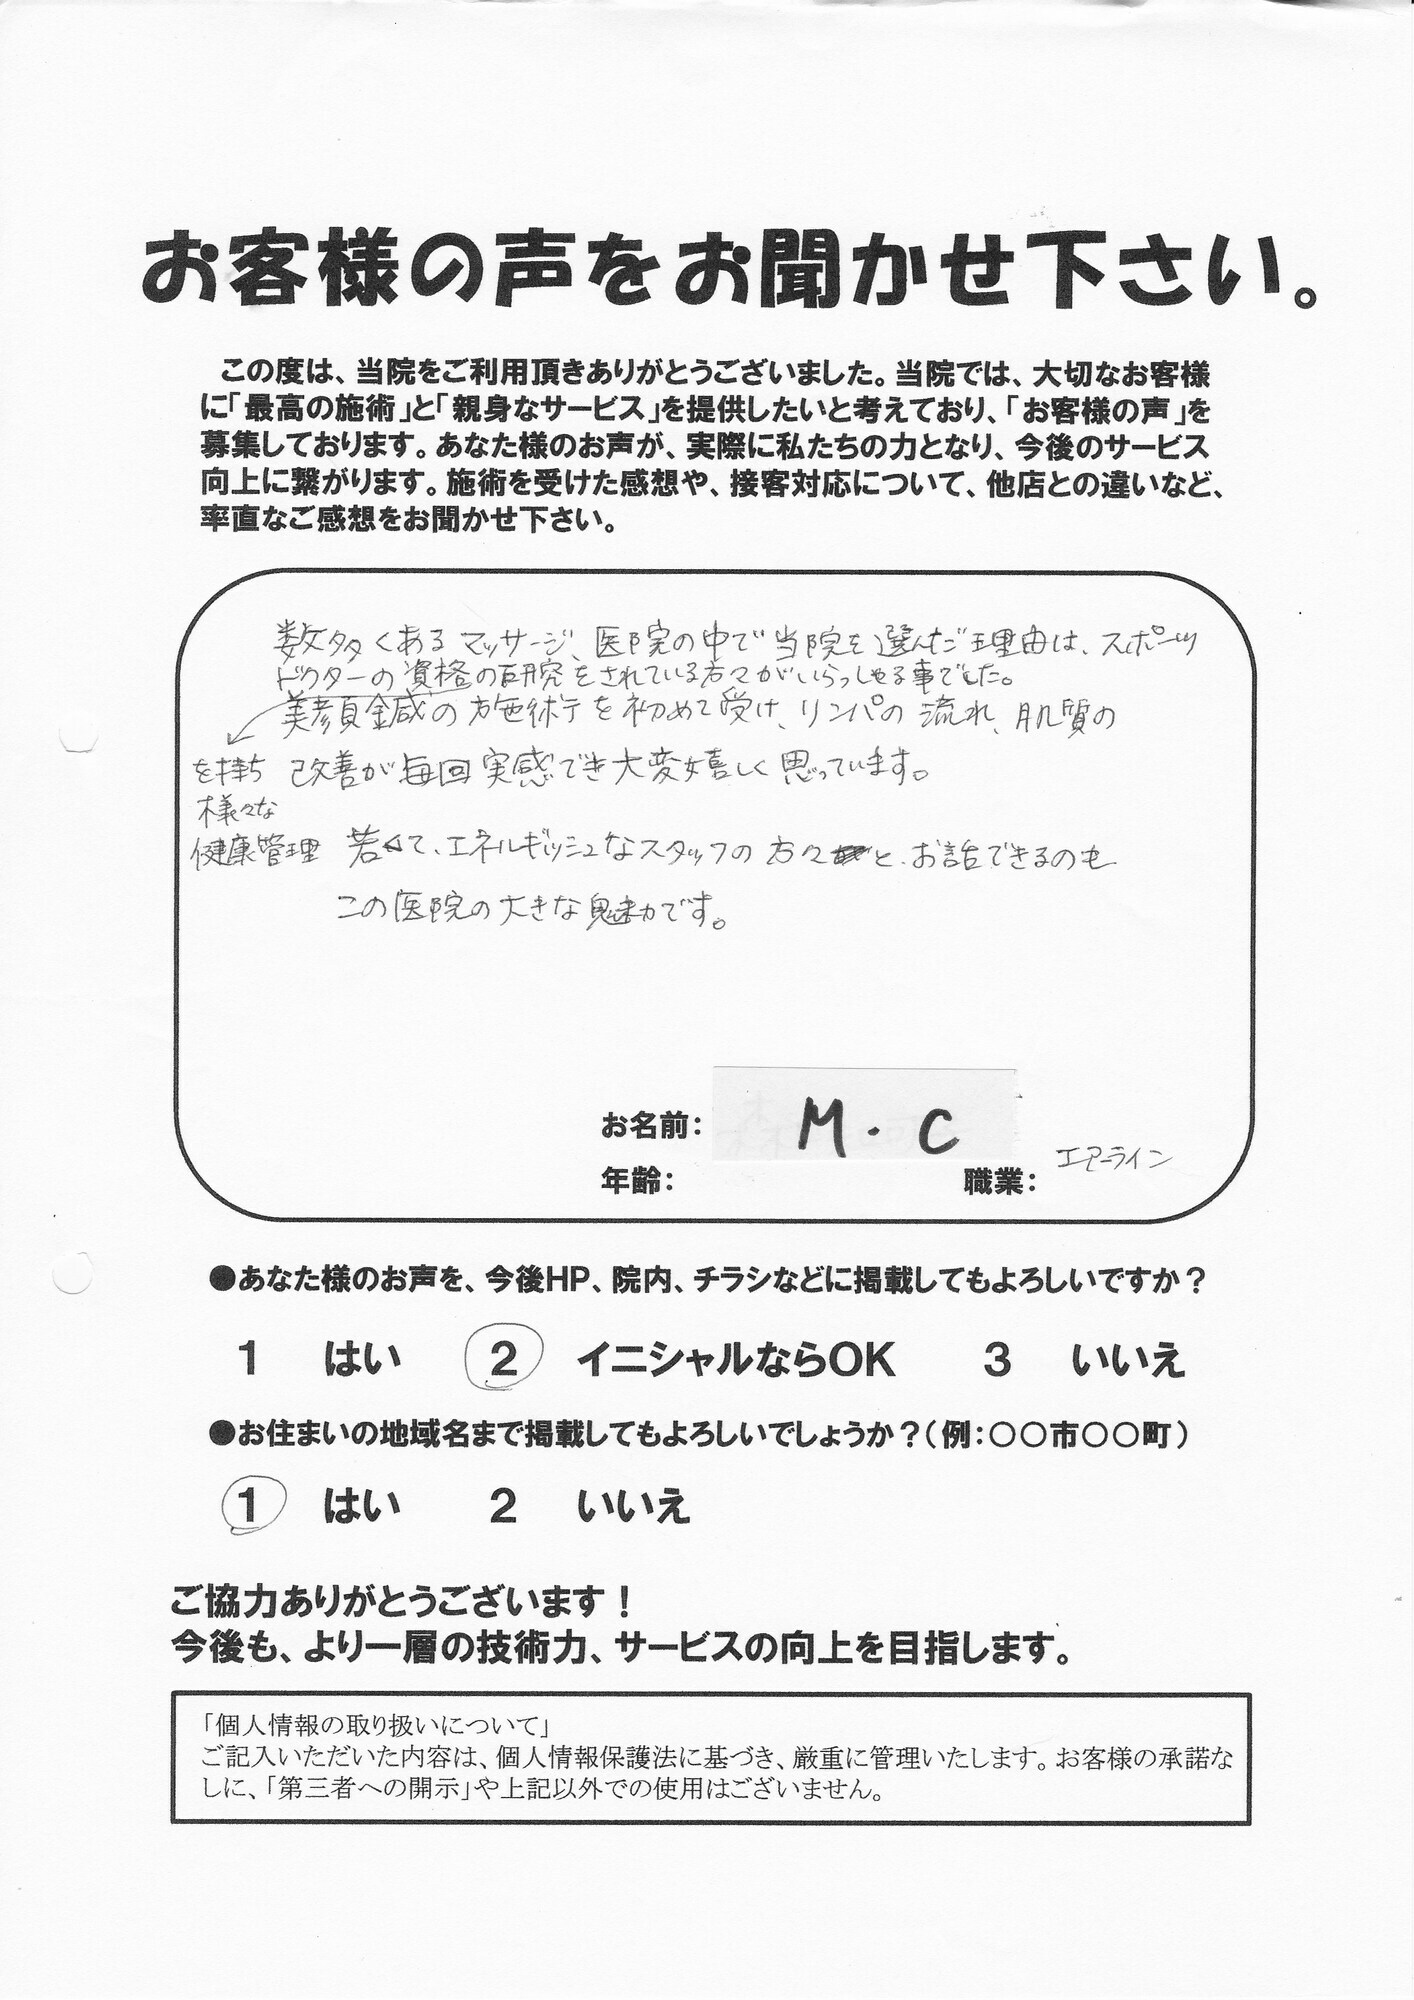 お客様の声をお聞かせ下さい。
この度は、当院をご利用頂きありがとうございました。当院では、大切なお客様
に「最高の施術」と「親身なサービス」を提供したいと考えており、「お客様の声」を
募集しております。あなた様のお声が、実際に私たちの力となり、今後のサービス
向上に繋がります。施術を受けた感想や、接客対応について、他店との違いなど、
率直なご感想をお聞かせ下さい。
数多くあるマッサージ、医院の中で当院を選んだ理由は、スポーツ
ドクターの資格の研究をされている方々がいらっしゃる事でした。
美顔鍼の施術を初めて受け、リンパの流れ、肌質の
を持ち
改善が毎回実感でき大変嬉しく思っています。
様々な
健康管理
若くて、エネルギッシュなスタッフの方々と、お話できるのも
この医院の大きな魅力です。
お名前: M.C
年齢:
職業: エアーライン
●あなた様のお声を、今後HP、院内、チラシなどに掲載してもよろしいですか?
1 はい 2 イニシャルならOK 3 いいえ
●お住まいの地域名まで掲載してもよろしいでしょうか?(例:○○市○○町)
1 はい 2 いいえ
ご協力ありがとうございます!
今後も、より一層の技術力、サービスの向上を目指します。
「個人情報の取り扱いについて」
ご記入いただいた内容は、個人情報保護法に基づき、厳重に管理いたします。お客様の承諾な
しに、「第三者への開示」や上記以外での使用はございません。